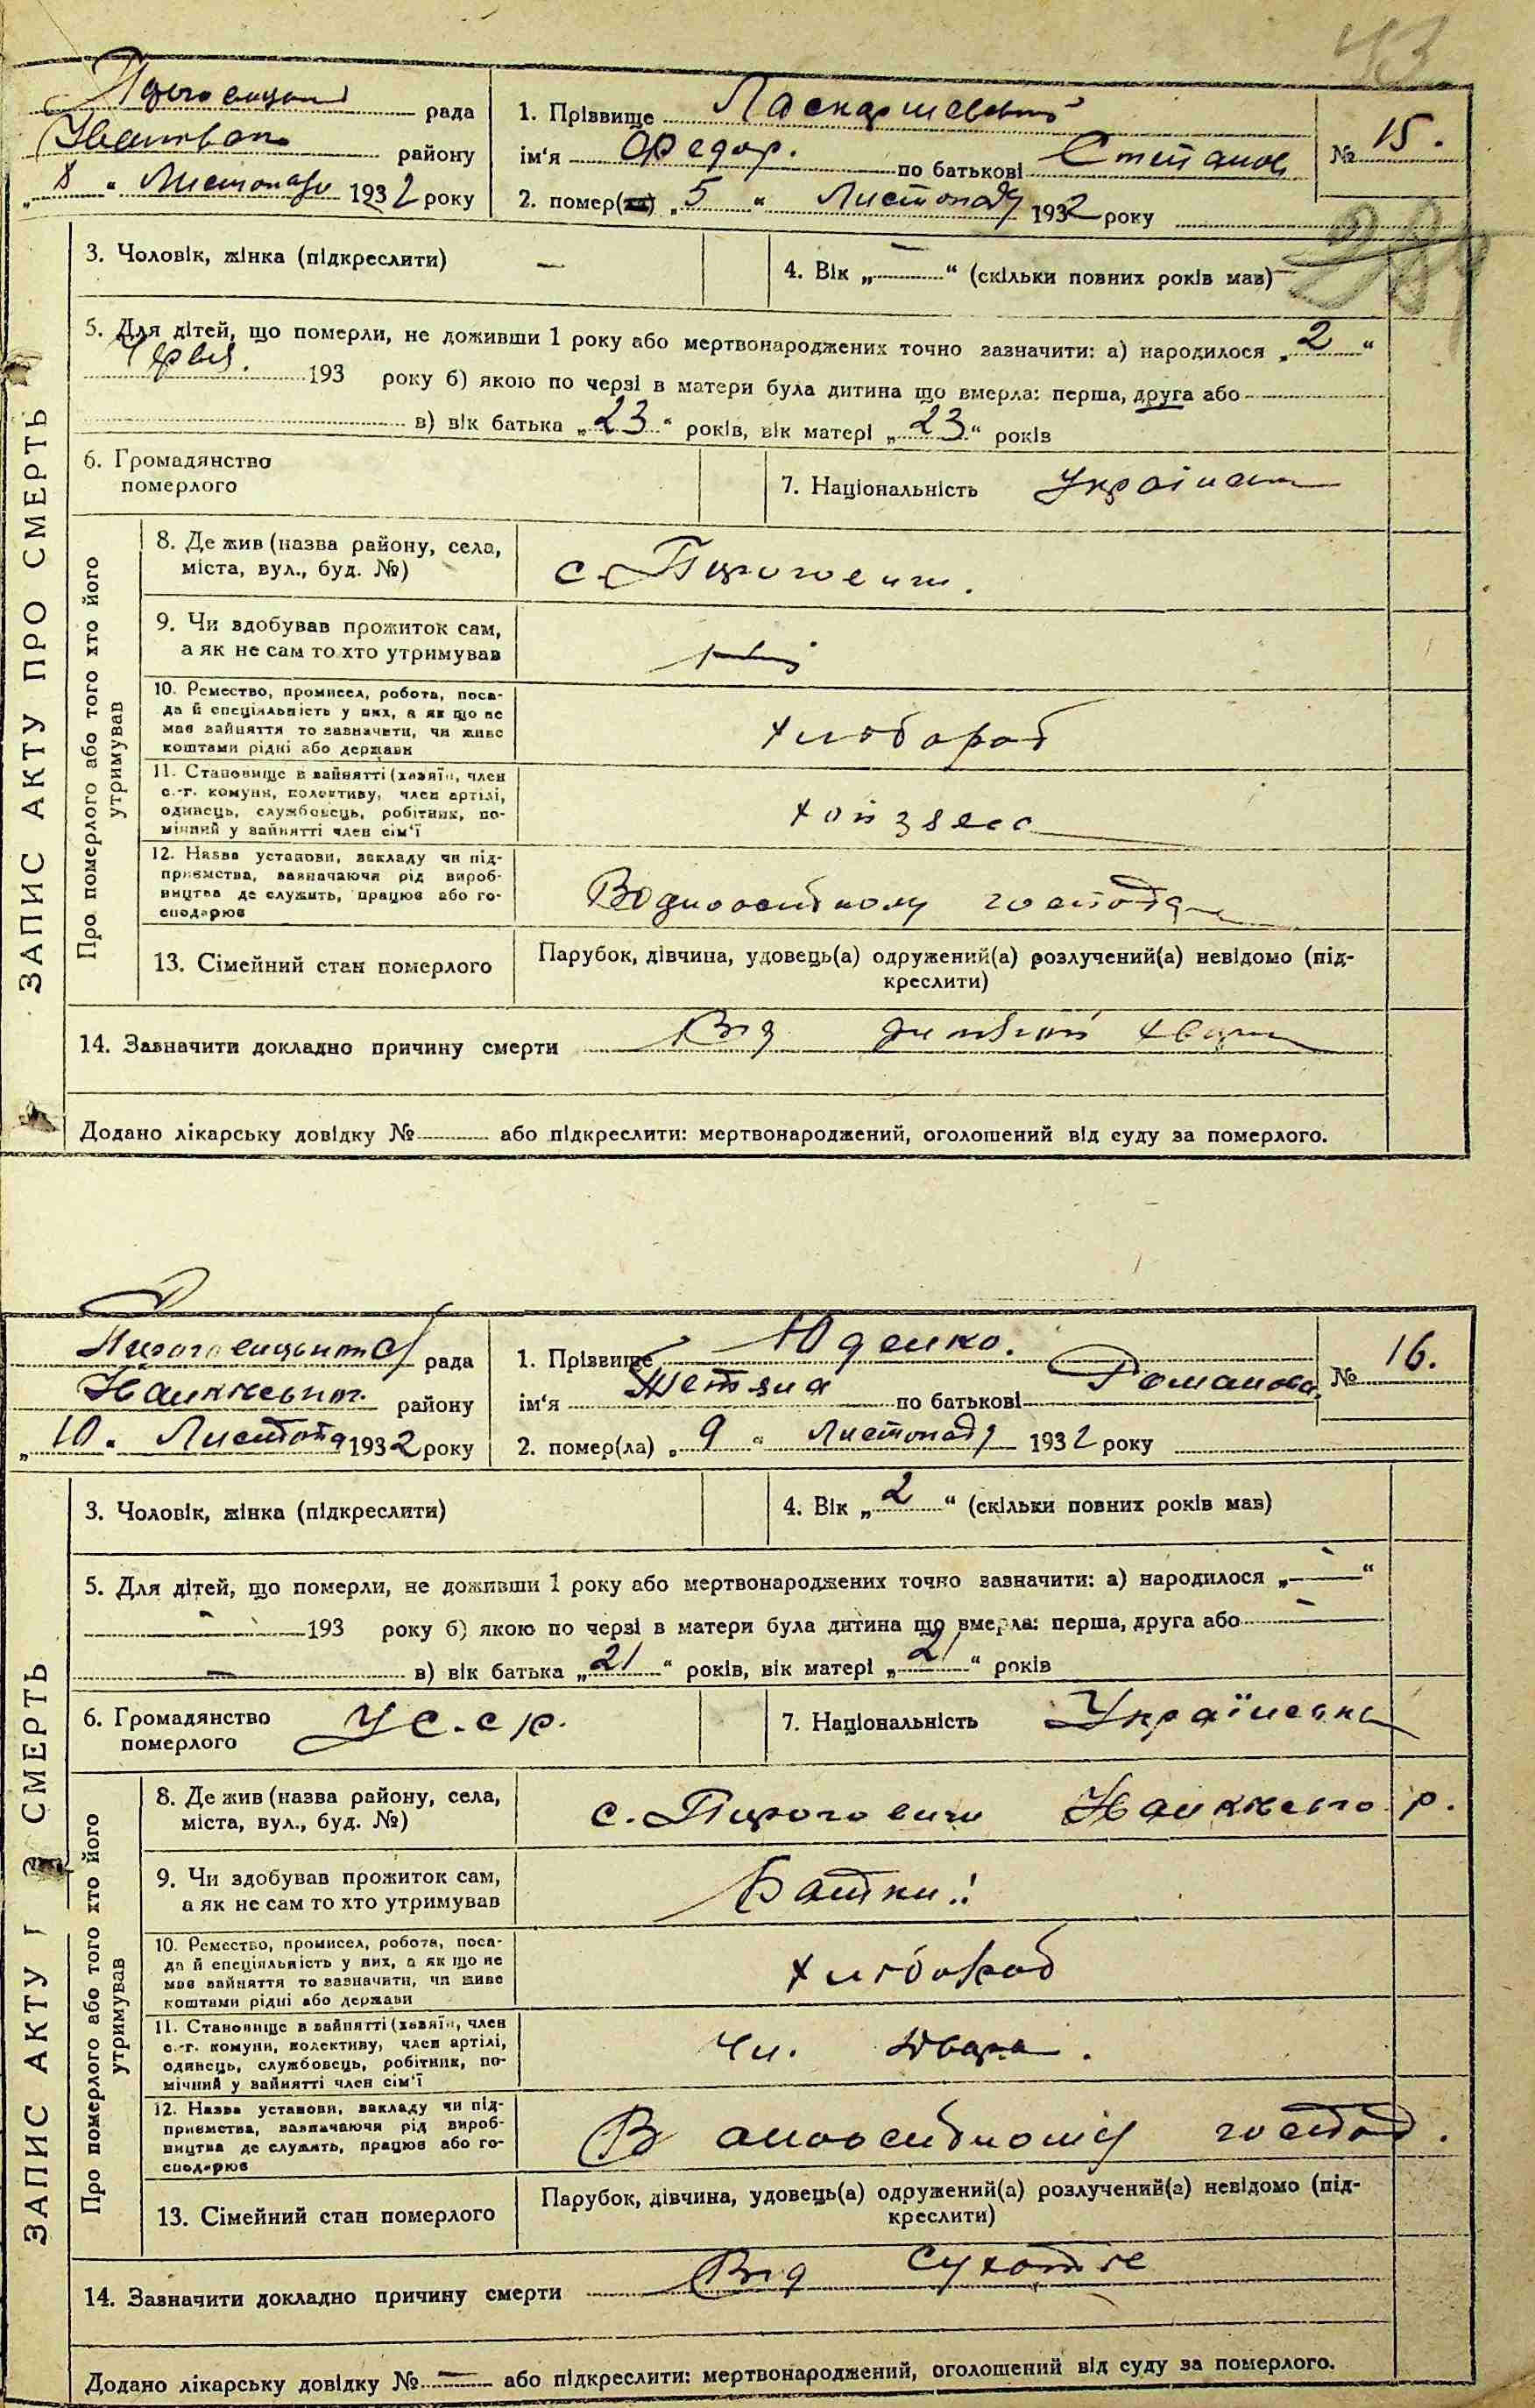 43
рада
району
„ 8 “ Листопада 1932 року
1. Прізвище
ім'я Федор. по батькові Степанов
2. помер(ла) „ 5 “ Листопаду 1932 року
№ 15.
3. Чоловік, жінка (підкреслити) —
4. Вік „—“ (скільки повних років мав)
5. Для дітей, що померли, не доживши 1 року або мертвонароджених точно зазначити: а) народилося „ 2 “
193 року б) якою по черзі в матери була дитина що вмерла: перша, друга або
в) вік батька „ 23 “ років, вік матері „ 23 “ років
6. Громадянство
померлого
7. Національність
ЗАПИС АКТУ ПРО СМЕРТЬ
Про померлого або того хто його
утримував
8. Де жив (назва району, села,
міста, вул., буд. №)
с. Пироговичі.
9. Чи здобував прожиток сам,
а як не сам то хто утримував
10. Ремество, промисел, робота, поса-
да й спеціяльність у них, а як що не
має зайняття то зазначити, чи живе
коштами рідні або держави
хлібороб
11. Становище в зайнятті (хазяїн, член
с.-г. комуни, колективу, член артілі,
одинець, службовець, робітник, по-
мічний у зайнятті член сім'ї
12. Назва установи, закладу чи під-
приємства, зазначаючи рід вироб-
ництва де служить, працює або го-
сподарює
13. Сімейний стан померлого
Парубок, дівчина, удовець(а) одружений(а) розлучений(а) невідомо (під-
креслити)
14. Зазначити докладно причину смерти Від
Додано лікарську довідку № або підкреслити: мертвонароджений, оголошений від суду за померлого.
рада
району
„ 10 “ 1932 року
1. Прізвище Юденко.
ім'я по батькові Романова
2. помер(ла) „ 9 “ Листопаду 1932 року
№ 16.
3. Чоловік, жінка (підкреслити)
4. Вік „ 2 “ (скільки повних років мав)
5. Для дітей, що померли, не доживши 1 року або мертвонароджених точно зазначити: а) народилося „—“
— 193 року б) якою по черзі в матери була дитина що вмерла: перша, друга або —
— в) вік батька „ 21 “ років, вік матері „ 21 “ років
6. Громадянство
померлого
У с. с р.
7. Національність Українська
ЗАПИС АКТУ ПРО СМЕРТЬ
Про померлого або того хто його
утримував
8. Де жив (назва району, села,
міста, вул., буд. №)
с. Пироговичі р.
9. Чи здобував прожиток сам,
а як не сам то хто утримував
Батки.
10. Ремество, промисел, робота, поса-
да й спеціяльність у них, а як що не
має зайняття то зазначити, чи живе
коштами рідні або держави
хлібороб
11. Становище в зайнятті (хазяїн, член
с.-г. комуни, колективу, член артілі,
одинець, службовець, робітник, по-
мічний у зайнятті член сім'ї
Чл. двора.
12. Назва установи, закладу чи під-
приємства, зазначаючи рід вироб-
ництва де служить, працює або го-
сподарює
В господ.
13. Сімейний стан померлого
Парубок, дівчина, удовець(а) одружений(а) розлучений(а) невідомо (під-
креслити)
14. Зазначити докладно причину смерти Від
Додано лікарську довідку № — або підкреслити: мертвонароджений, оголошений від суду за померлого.